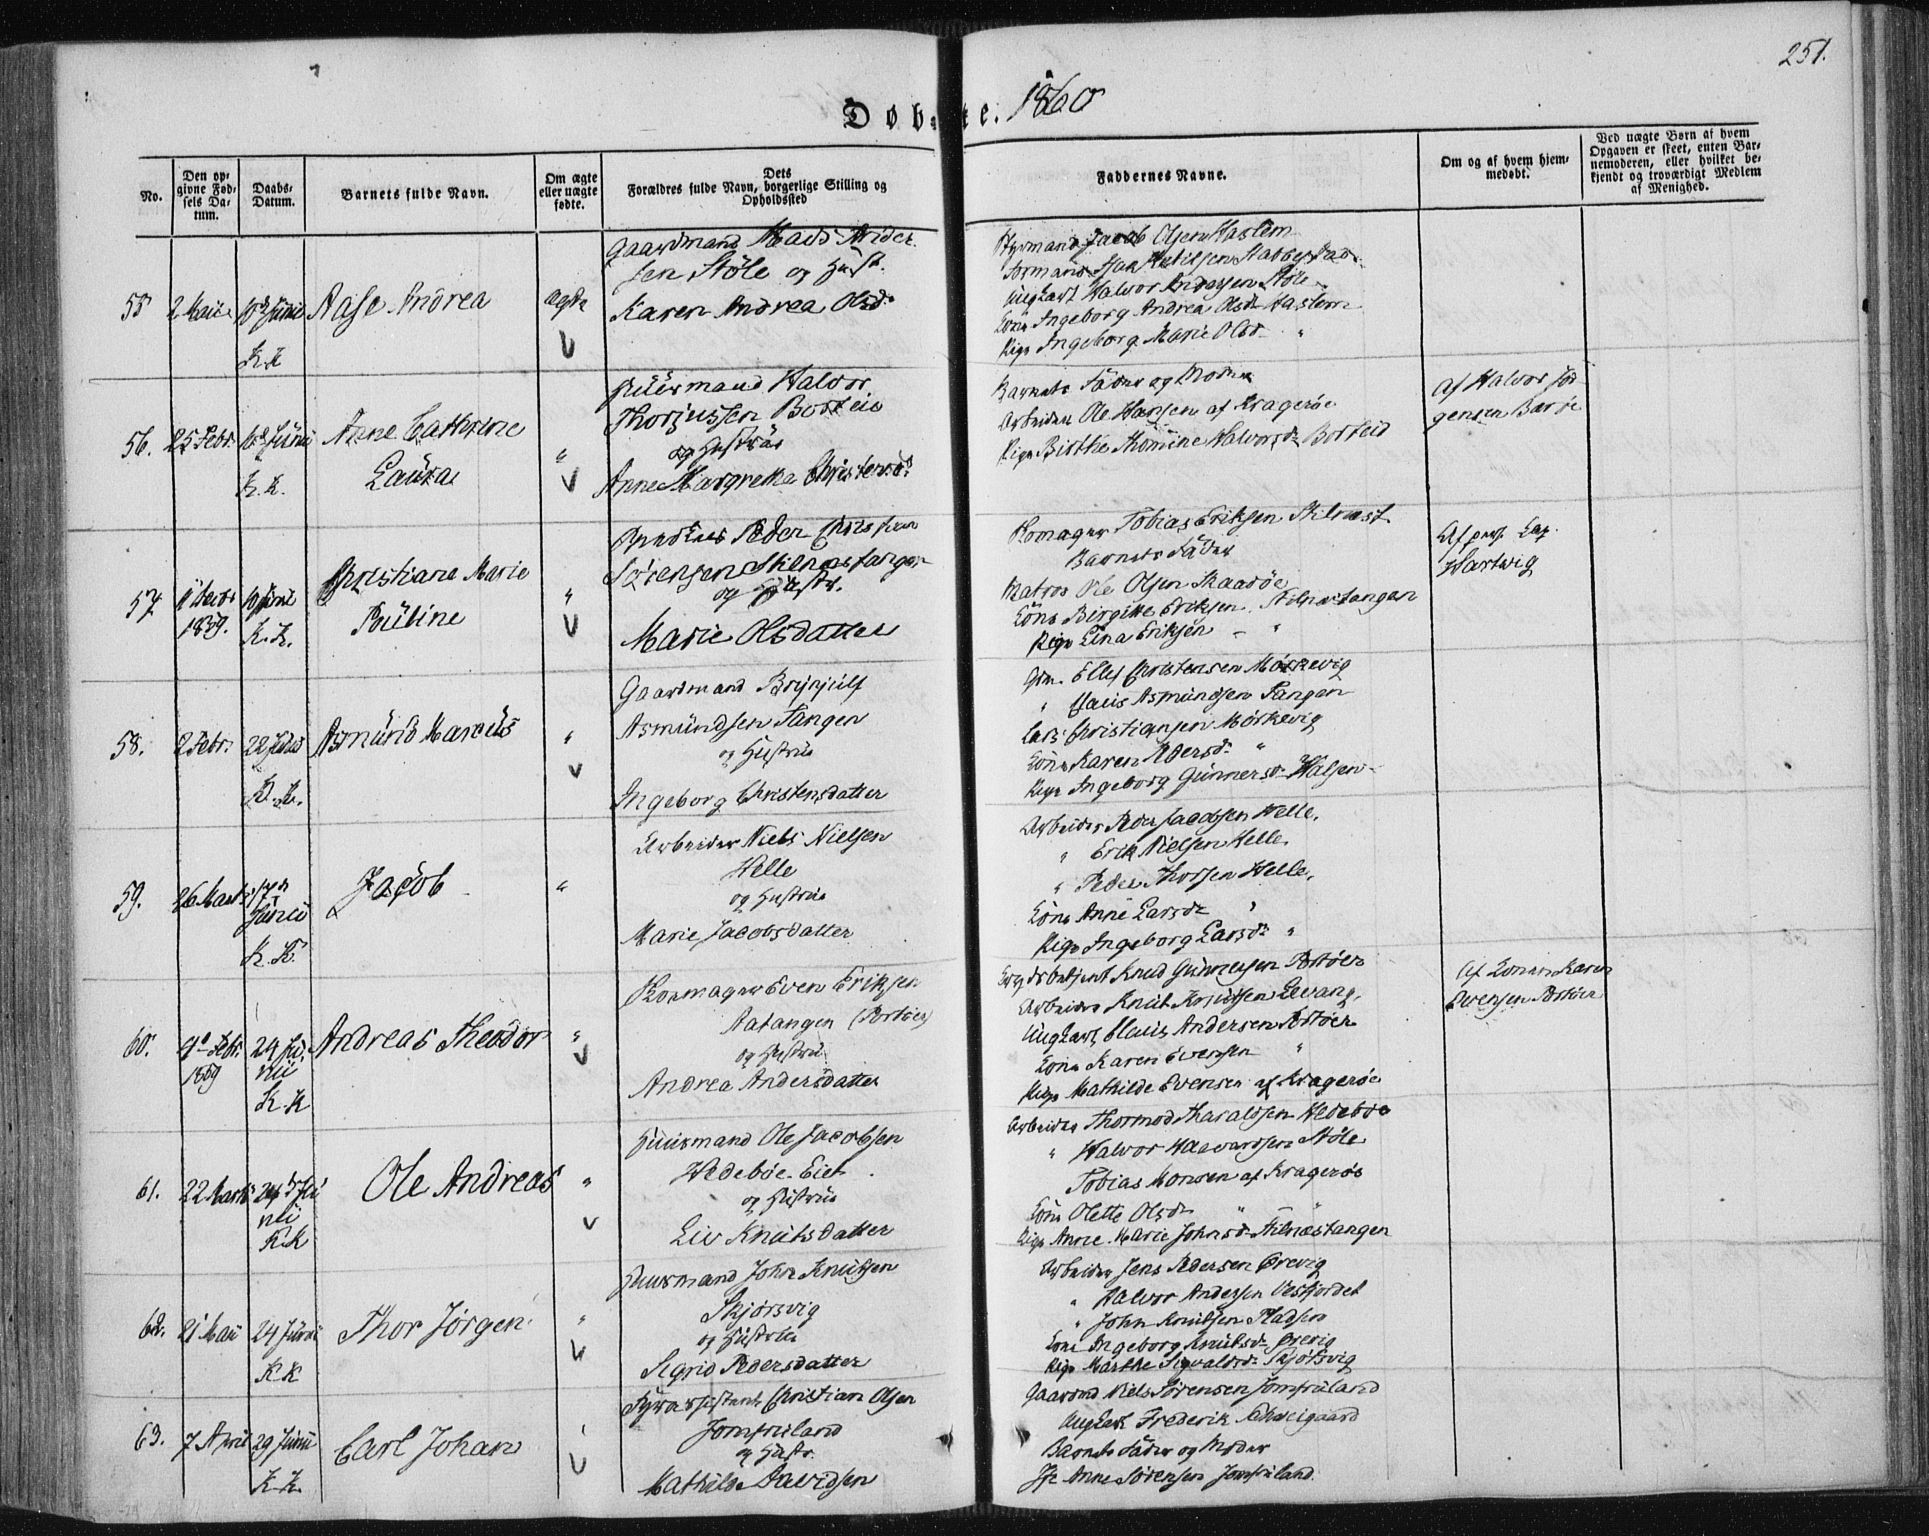 251.
Døbte. 1860
No.
Den opgivne Fødsels Datum.
Daabs-Datum.
Barnets fulde Navn.
Om ægte eller uægte fødte.
Dets Forældres fulde Navn, borgerlige Stilling og Opholdssted
Faddernes Navne.
Om og af hvem hjemmedøbt.
Ved uægte Børn af hvem Opgaven er skeet, enten Barnemoderen, eller hvilket bekjendt og troværdigt Medlem af Menighed.
55 2 Maii 10de Junii Aase Andrea ægte
K.K
Gaardmand Mads Andersen Støle og Hust.
Karen Andrea Olsd.
Styrmand Jacob Olsen Haslem
Ungkarl Halvor Andersen Støle
Kone Ingeborg Andrea Olsdr Haslem
Pige Ingeborg Marie Olsd. "
56. 25 Febr. 10de Junii Anne Cathrine "
K.K. Laura
Huusmand Halvor
og Hustrue
Anne Margrethe
Barnets Fader og Moder
Arbeider Ole Hansen af Kragerøe
Pige Birthe Thomine Halvorsdr
af Halvor Jørgensen Barøe
57. 1859. 10 Junii Christiane Marie "
K.K. Pauline
Peder
Sørensen
og Hustr.
Marie Olsdatter
Tobias Eriksen
Barnets Fader
Matros Ole Olsen Skaadøe
Kone Birgitte Eriksen
Pige Lina Eriksen - "
Hartvig
58. 2 Febr. 22 Junii Asmund Marcus "
K.K.
Gaardmand Brynjulf
Asmundsen Tangen
og Hustrue
Ingeborg Christensdatter
Gm. Ellef Christensen Mørkevig
" Asmundsen Tangen
Lars Christiansen Mørkevig
Kone Karen Pedersdr "
Pige Ingeborg Gunnersdr
59. 26 Marts 17de Junii Jacob "
K.K.
Arbeider Niels Nielsen
Helle
og Hustrue
Marie Jacobsdatter
Arbeider Peder Jacobsen Helle.
" Erik Nielsen Helle
" Peder Thorsen Helle.
Kone Anne Larsdr "
Pige Ingeborg Larsdr "
60. Febr. 1859 24 Junii Andreas Theodor "
K.K
Even Eriksen
Aatangen (Portøer)
og Hustru
Andrea Andersdatter
Knud Gunnersen Portøer
Arbeider Knut Knutsen Levang.
Ungkarl Claus Andersen Portøer
Kone Karen Evensen "
Pige Mathilde Evensen af Kragerøe
af Konen Karen
Evensen Portøer
61. 22 Marts 24de Junii Ole Andreas "
K.K
Huusmand Ole Jacobsen
Hedebøe Eiet
og Hustrue
Liv Knutsdatter
Arbeider Thormod Haraldsen Hedebøe
" Halvor Haavardsen Støle
Tobias Monsen af Kragerøe
Kone Olette Olsdr " "
Pige Anne Marie Johnsdr
62. 21 Maii 24 Junii Thor Jørgen "
K.K
Huusmand John Knutsen
Skjørsvig
og Hustrue
Sigrid Pedersdatter
Arbeider Jens Pedersen Ørevig
" Halvor Andersen Vestfjordet
" John Knutsen Pladsen
Kone Ingeborg Knutsdr Ørevig
Pige Marthe Sigvaldsdr
63. 7 April 29 Junii Carl Johan
K.K.
Christian Olsen
Jomfruland
og Hustr.
Mathilde Davidsen
Gaardmd Niels Sørensen Jomfruland
Ungkarl Frederik Schweigaard
Barnets Fader og Moder
Anne Sørensen Jomfruland.